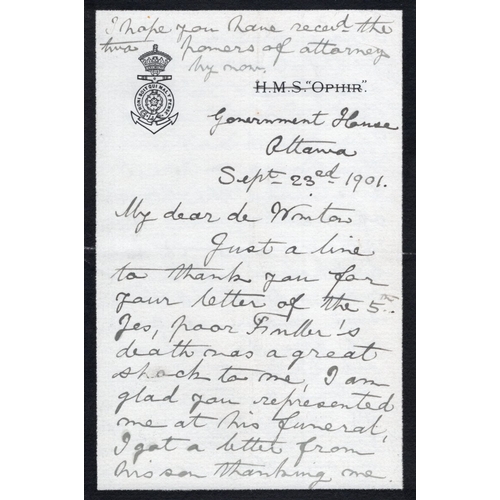 I hope you have recd the
two powers of attorney
by now.
HONI SOIT QUI MAL Y PENSE
H.M.S. "OPHIR".
Government House
Ottawa
Sept 23rd 1901.
My dear de Winton
Just a line
to thank you for
your letter of the 5th.
Yes, poor Fuller's
death was a great
shock to me, I am
glad you represented
me at his funeral,
I got a letter from
his son thanking me.